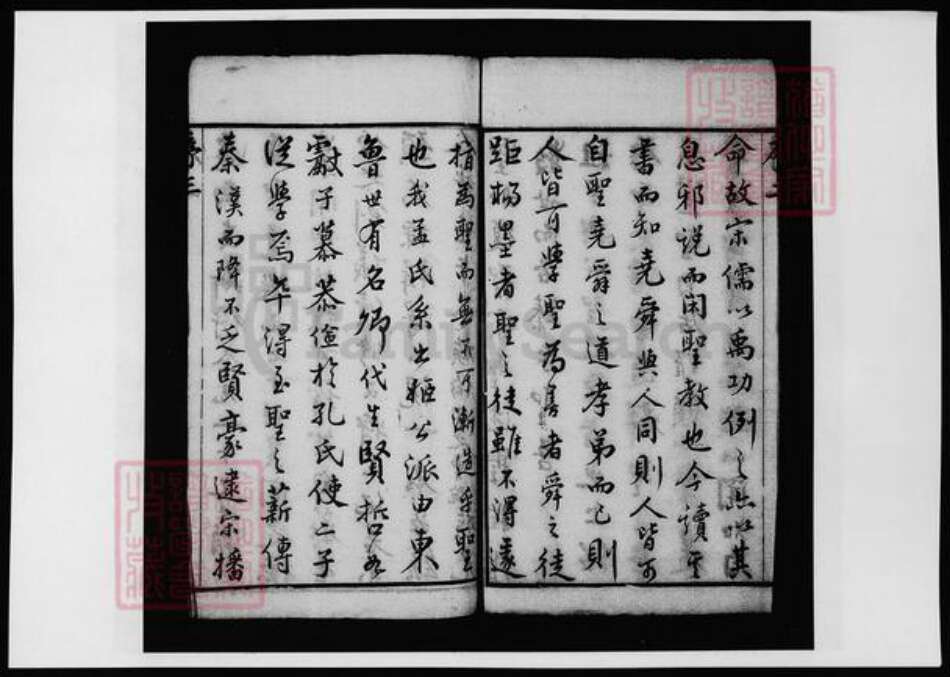 序二
命故宋儒以禹功例之亦以其
息邪説而閑聖教也今讀其
書而知堯舜與人同則人皆可
自聖堯舜之道孝弟而已則
人皆可學聖為善者舜之徒
距楊墨者聖之徒雖不得遽
指為聖而無不可漸造乎聖
也我孟氏系出姬公派由東
魯世有名卿代生賢哲如
獻子慕恭儉於孔氏使二子
從學焉卒得至聖之薪傳
秦漢而降不乏賢豪逮宋播
序三
FamilySearch